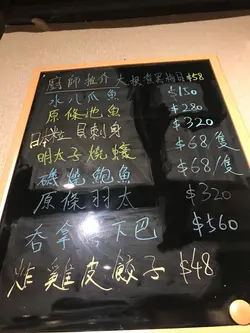 廚師推介 大根雲黑梅貝$58
水八爪魚 $150
原條池魚 $280
日本粒貝刺身 $320
明太子燒蠔 $68/隻
磯燒鮑魚 $68/隻
原條羽太 $320
吞拿下巴 $560
炸雞皮餃子 $48